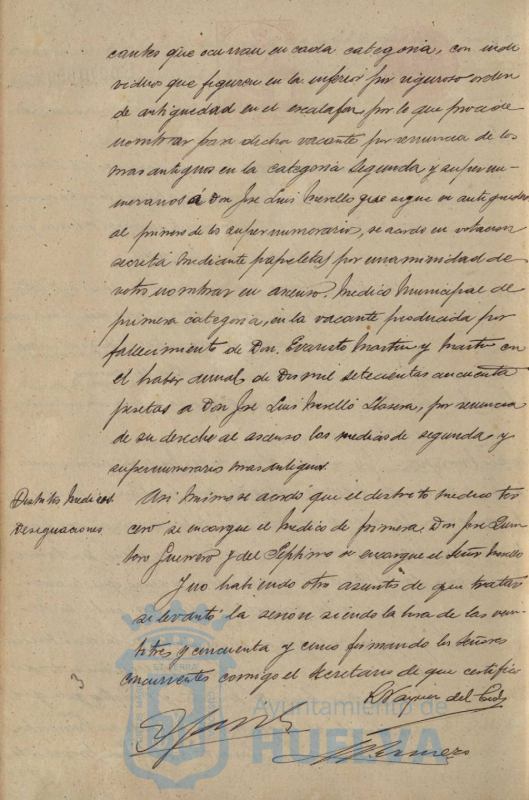 cantes que ocurran en cada categoria, con indi
viduos que figuren en la inferior por riguroso orden
de antiguedad en el escalafon, por lo que procede
nombrar para dicha vacante por renuncia de los
mas antiguos en la categoria segunda y supernu-
merarios á Don Jose Luis Morelló que sigue en antiguedad
al primero de los supernumerarios, se acordo en votacion
secreta mediante papeletas por unanimidad de
votos nombrar en ascenso, Medico Municipal de
primera categoria, en la vacante producida por
fallecimiento de Don Evaristo Martin y Martin con
el haber anual de Dos mil setecientas cincuenta
pesetas a Don Jose Luis Morelló, por renuncia
de su derecho al ascenso los medicos de segunda y
supernumerario mas antiguos
Distritos Medicos
Designaciones
Asi mismo se acordó que el distrito medico ter
cero se encargue el Medico de primera Don Jose
Guerrero y del Septimo se encargue el Señor Morelló
Y no habiendo otro asunto de que tratar
se levantó la sesion siendo la hora de las vein-
titres y cincuenta y cinco firmando los Señores
concurrentes conmigo el secretario de que certifico
3
Ayuntamiento de
HUELVA